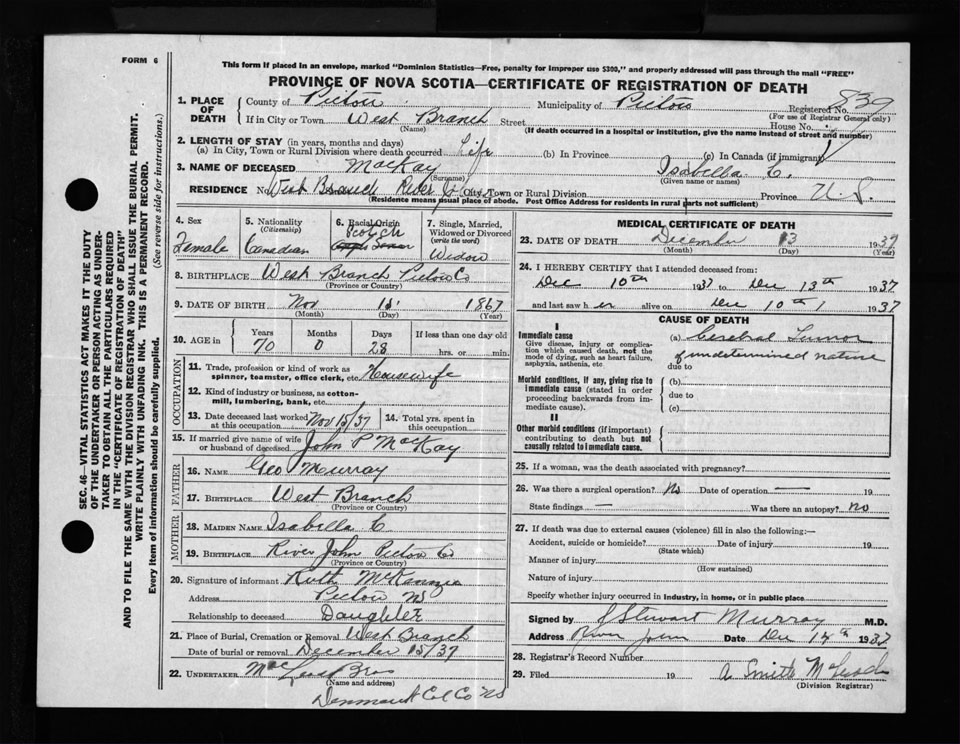 FORM 6
This form if placed in an envelope, marked "Dominion Statistics—Free, penalty for improper use $300," and properly addressed will pass through the mail "FREE"
PROVINCE OF NOVA SCOTIA—CERTIFICATE OF REGISTRATION OF DEATH
1. PLACE OF DEATH County of Pictou Municipality of Pictou Registered No. 839
(For use of Registrar General only)
If in City or Town West Branch Street House No.
(Name) (If death occurred in a hospital or institution, give the name instead of street and number)
2. LENGTH OF STAY (in years, months and days)
(a) In City, Town or Rural Division where death occurred Life (b) In Province (c) In Canada (if immigrant)
3. NAME OF DECEASED MacKay Isabella C.
(Surname) (Given name or names)
RESIDENCE No. West Branch River John City, Town or Rural Division Province N.S.
(Residence means usual place of abode. Post Office Address for residents in rural parts not sufficient)
4. Sex Female
5. Nationality (Citizenship) Canadian
6. Racial Origin Scotch
7. Single, Married, Widowed or Divorced (write the word) Widow
8. BIRTHPLACE West Branch Pictou Co
(Province or Country)
9. DATE OF BIRTH Nov 15 1867
(Month) (Day) (Year)
10. AGE in Years Months Days If less than one day old
70 0 28 hrs. or min.
OCCUPATION
11. Trade, profession or kind of work as spinner, teamster, office clerk, etc. Housewife
12. Kind of industry or business, as cotton-mill, lumbering, bank, etc.
13. Date deceased last worked at this occupation Nov 15/37 14. Total yrs. spent in this occupation
15. If married give name of wife or husband of deceased John P MacKay
FATHER
16. NAME Geo Murray
17. BIRTHPLACE West Branch
(Province or Country)
MOTHER
18. MAIDEN NAME Isabella C
19. BIRTHPLACE River John Pictou Co
(Province or Country)
20. Signature of informant Ruth McKenzie
Address Pictou NS
Relationship to deceased Daughter
21. Place of Burial, Cremation or Removal West Branch
Date of burial or removal December 15/37
22. UNDERTAKER MacLeod Bros
(Name and address)
Denmark Col Co NS
MEDICAL CERTIFICATE OF DEATH
23. DATE OF DEATH December 13 1937
(Month) (Day) (Year)
24. I HEREBY CERTIFY that I attended deceased from:
Dec 10th 1937 to Dec 13th 1937
and last saw her alive on Dec 10th 1937
CAUSE OF DEATH
I
Immediate cause
Give disease, injury or complication which caused death, not the mode of dying, such as heart failure, asphyxia, asthenia, etc.
(a) Cerebral Tumor
of undetermined nature
due to
Morbid conditions, if any, giving rise to immediate cause (stated in order proceeding backwards from immediate cause).
(b)
due to
(c)
II
Other morbid conditions (if important) contributing to death but not causally related to immediate cause.
25. If a woman, was the death associated with pregnancy?
26. Was there a surgical operation? No Date of operation — 19
State findings — Was there an autopsy? no
27. If death was due to external causes (violence) fill in also the following:
Accident, suicide or homicide? Date of injury 19
(State which)
Manner of injury
(How sustained)
Nature of injury
Specify whether injury occurred in industry, in home, or in public place
Signed by J Stewart Murray M.D.
Address River John Date Dec 14th 1937
28. Registrar's Record Number
29. Filed 19 A Smith McLeod
(Division Registrar)
SEC. 46—VITAL STATISTICS ACT MAKES IT THE DUTY
OF THE UNDERTAKER OR PERSON ACTING AS UNDER-
TAKER TO OBTAIN ALL THE PARTICULARS REQUIRED
IN THE "CERTIFICATE OF REGISTRATION OF DEATH"
AND TO FILE THE SAME WITH THE DIVISION REGISTRAR WHO SHALL ISSUE THE BURIAL PERMIT.
WRITE PLAINLY WITH UNFADING INK. THIS IS A PERMANENT RECORD.
Every item of information should be carefully supplied. (See reverse side for instructions.)